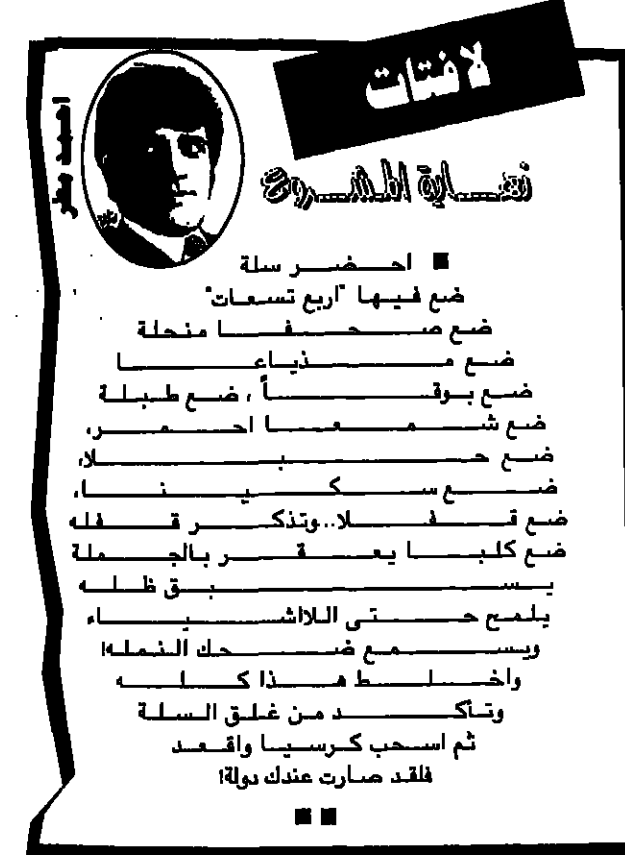 لافتات
احمد مطر
نهاية المشروع
■ احضر سلة
ضع فيها "اربع تسعات"
ضع صحفا منحلة
ضع مذياعا
ضع بوقاً ، ضع طبلة
ضع شمعا احمر،
ضع حبلا،
ضع سكينا،
ضع قفلا..وتذكر قفله
ضع كلبا يعقر بالجملة
يسبق ظله
يلمح حتى اللااشياء
ويسمع ضحك النمله!
واخلط هذا كله
وتأكد من غلق السلة
ثم اسحب كرسيا واقعد
فلقد صارت عندك دولة!